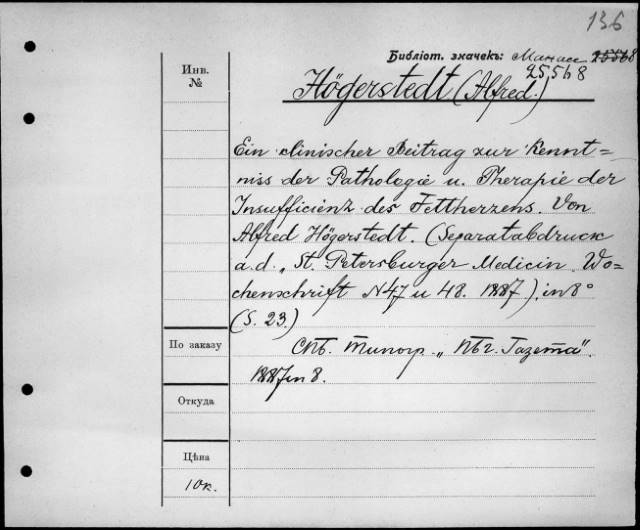 136
Библіот. значекъ: Манас 25568
25568
Инв.
№
Högerstedt (Alfred.)
Ein clinischer Beitrag zur Kennt=
niss der Pathologie u. Therapie der
Insufficienz des Fettherzens. Von
Alfred Högerstedt. (Separatabdruck
a. d. „St. Petersburger Medicin. Wo-
chenschrift N 47 u 48. 1887), in 8°
(S. 23.)
По заказу
Спб. Типогр. „Пбг. Газета".
1887 in 8.
Откуда
Цѣна
10к.